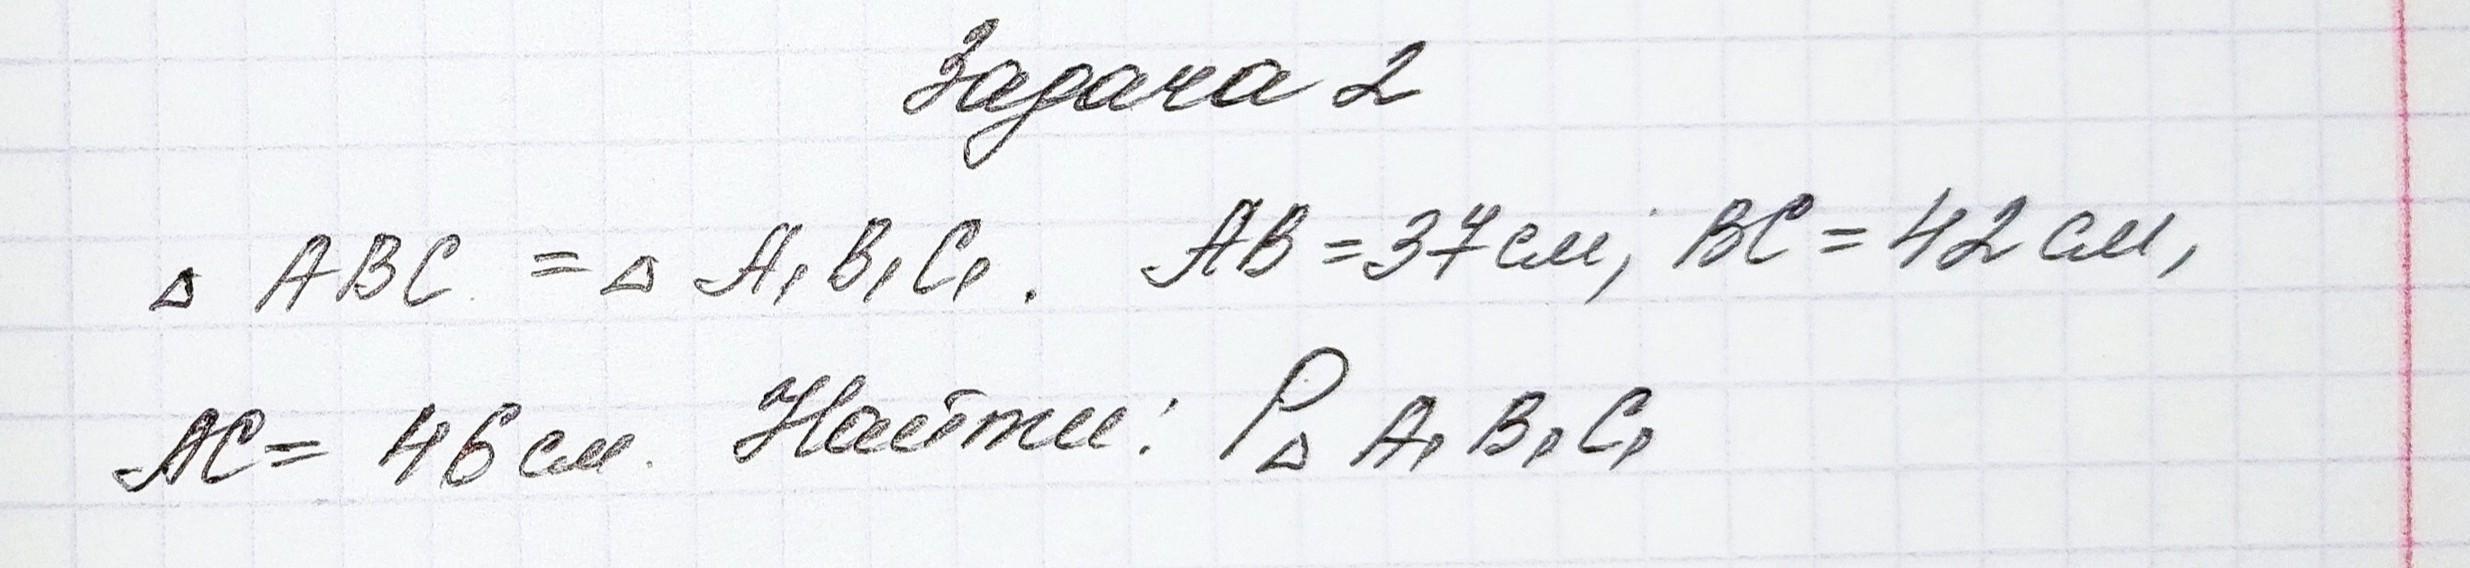 Задача 2
△ ABC = △ A₁B₁C₁. AB = 37 см; BC = 42 см,
AC = 46 см. Найти: P△ A₁B₁C₁